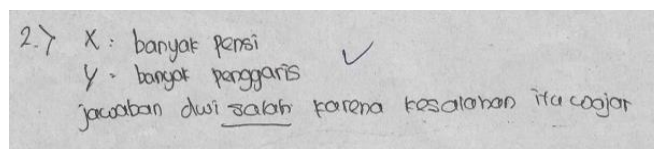 2.) X : banyak pensi
y = banyak penggaris
jawaban dwi salah karena kesalahan itu wajar